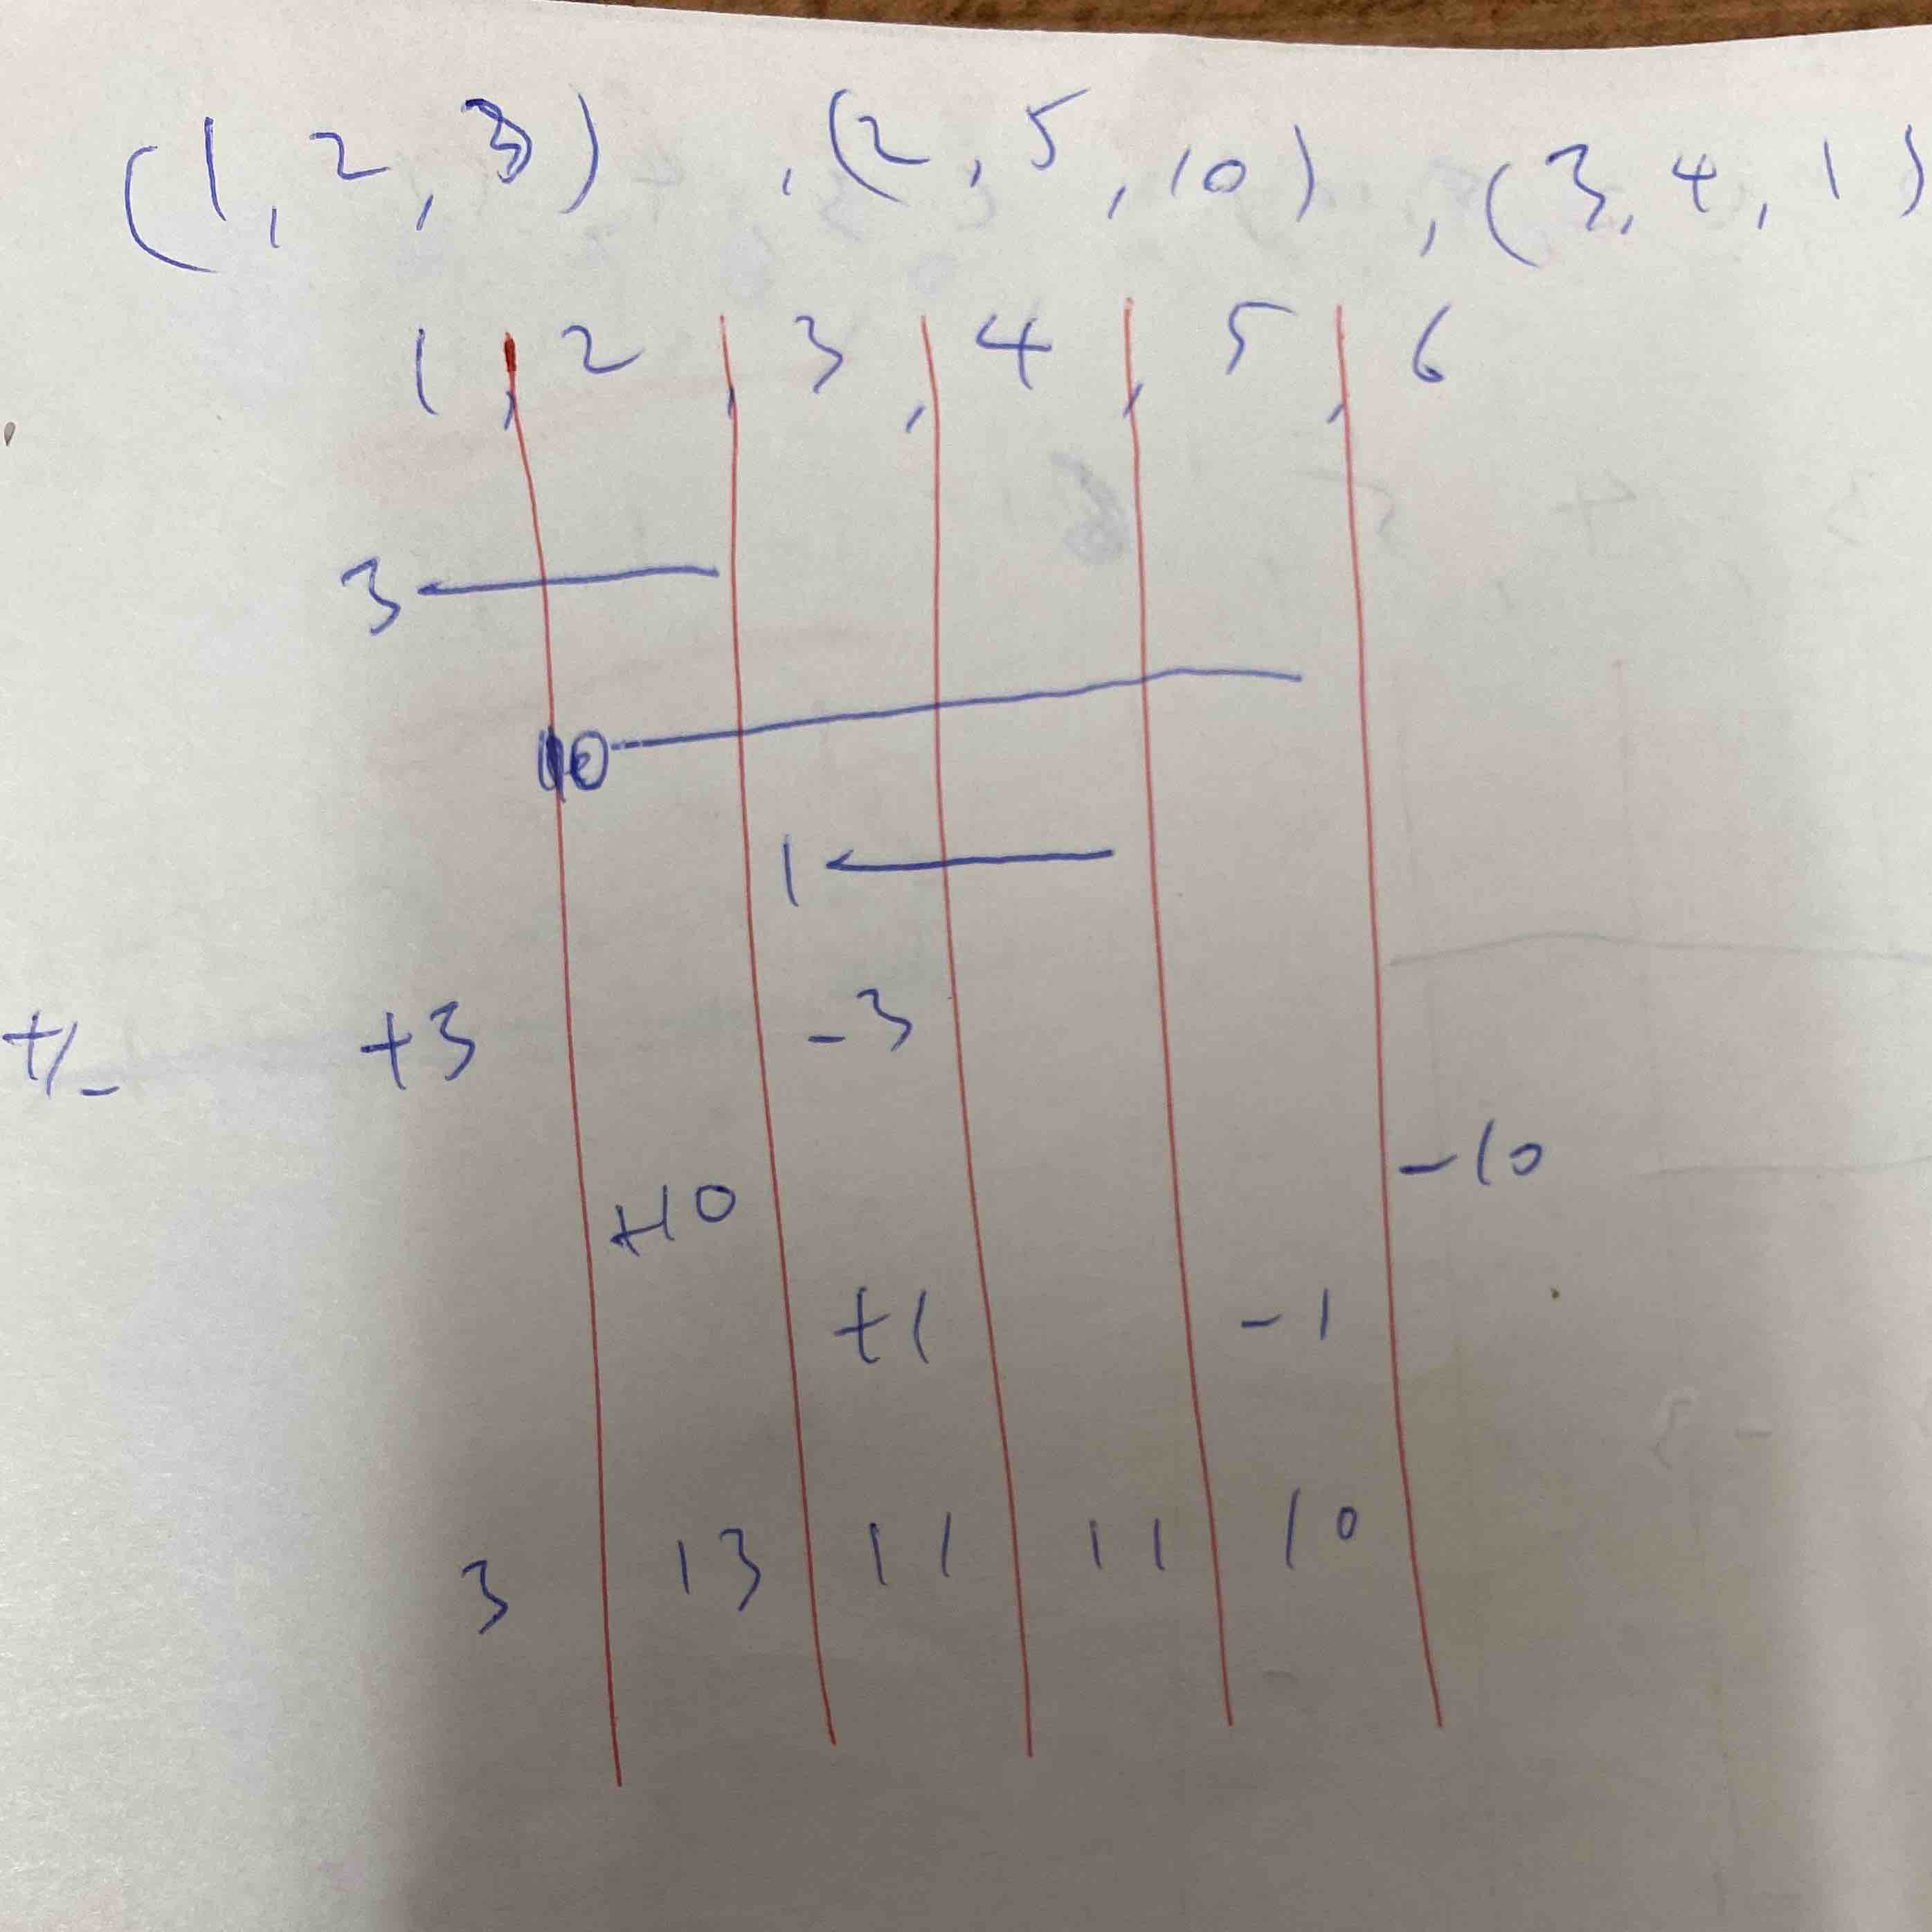 (1, 2, 3) , (2, 5, 10) , (3, 4, 1)
1, 2, 3, 4, 5, 6
3
10
1
+/- +3 -3
+10 -10
+1 -1
3 13 11 11 10